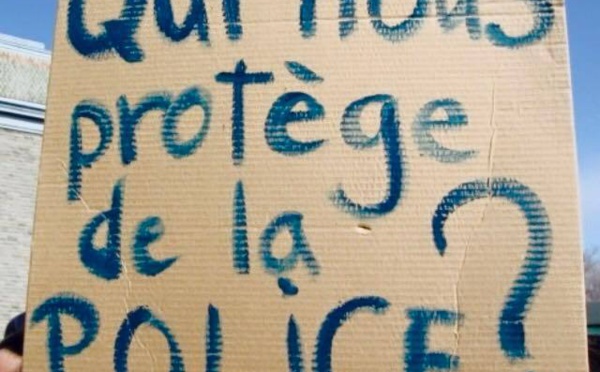 Qui nous
protège
de la
POLICE ?